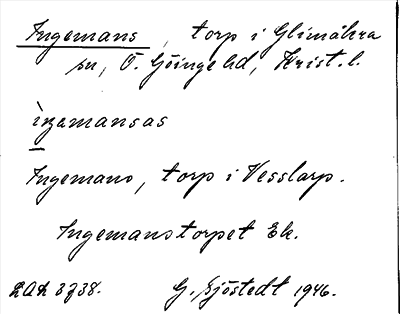 Ingemans, torp i Glimåkra
sn, Ö. Göinge hd, Krist. l.
ìŋemansas
Ingemans, torp i Vesslarp.
Ingemanstorpet Ek.
LAL 3738. G. Sjöstedt 1946.